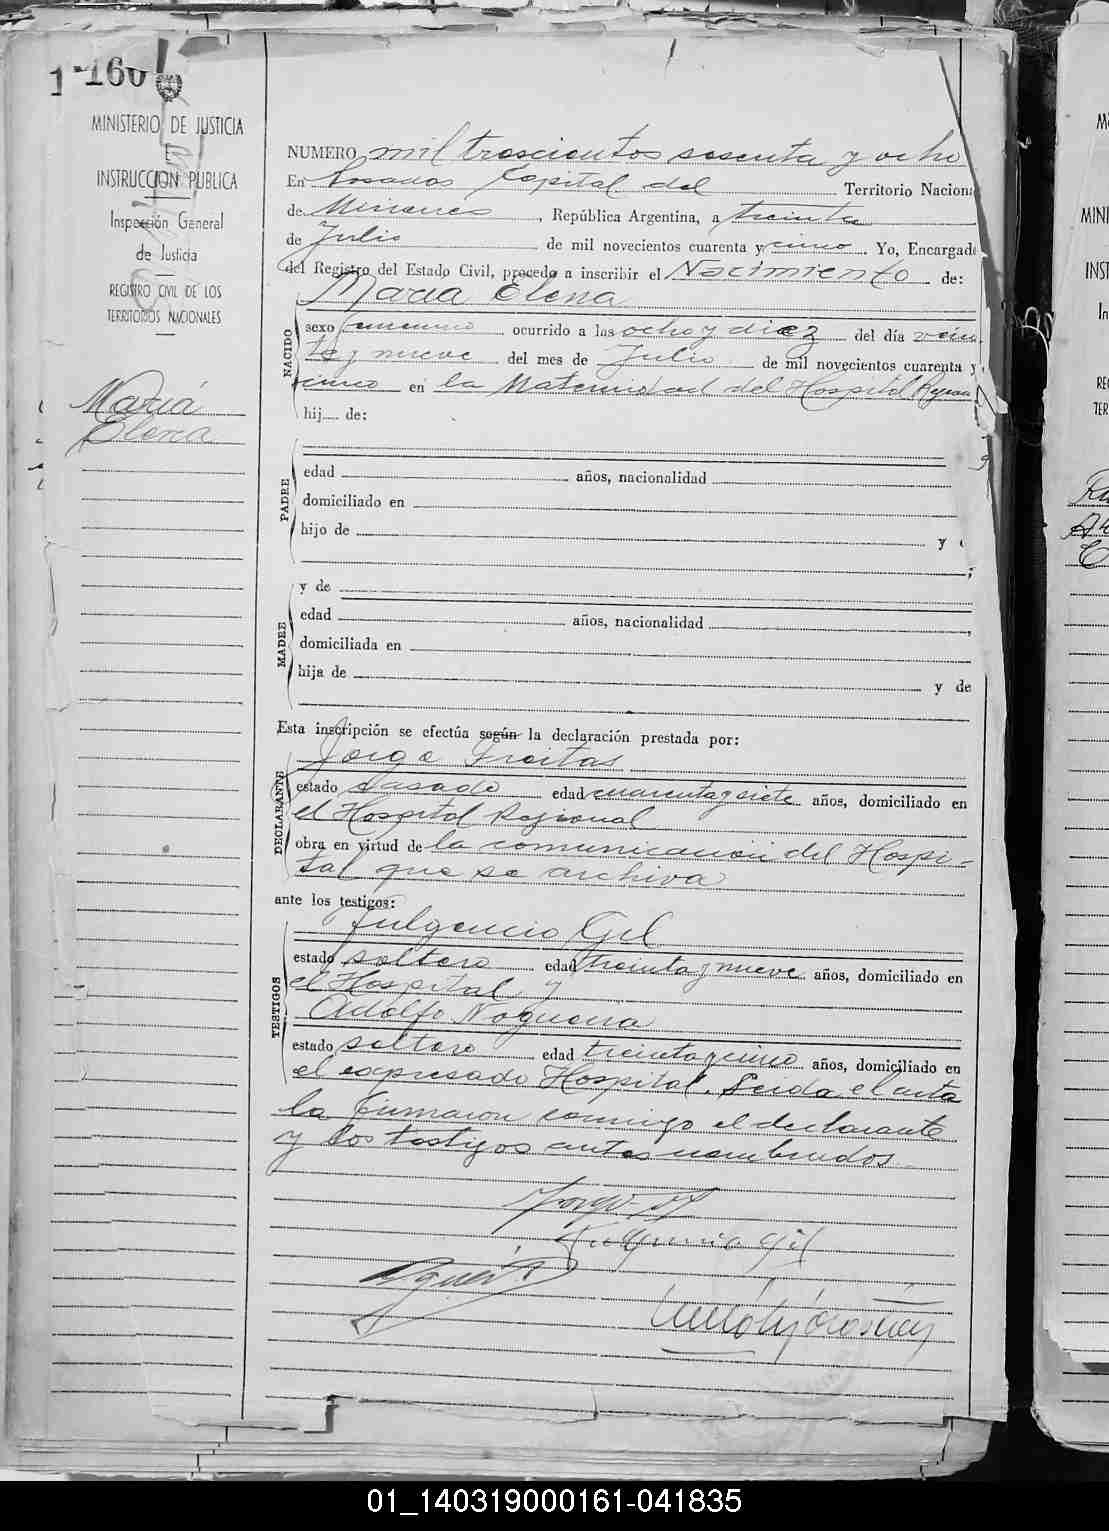 1-160
MINISTERIO DE JUSTICIA
E
INSTRUCCION PUBLICA
Inspección General
de Justicia
REGISTRO CIVIL DE LOS
TERRITORIOS NACIONALES
María
Elena
NUMERO mil trescientos sesenta y ocho
En Posadas Capital del Territorio Naciona
de Misiones, República Argentina, a treinta
de Julio de mil novecientos cuarenta y cinco. Yo, Encargad
del Registro del Estado Civil, procedo a inscribir el Nacimiento de:
Maria Elena
NACIDO
sexo femenino ocurrido a las ocho y diez del día vein
te y nueve del mes de Julio de mil novecientos cuarenta y
cinco en la Maternidad del Hospital Regional
hij de:
PADRE
edad años, nacionalidad
domiciliado en
hijo de y
;
MADRE
y de
edad años, nacionalidad
domiciliada en
hija de y de
Esta inscripción se efectúa según la declaración prestada por:
Jorge Freitas
DECLARANTE
estado Casado edad cuarenta y siete años, domiciliado en
el Hospital Regional
obra en virtud de la comunicación del Hospi-
tal que se archiva
ante los testigos:
Fulgencio Gil
TESTIGOS
estado soltero edad treinta y nueve años, domiciliado en
el Hospital y
Adolfo Noguera
estado soltero edad treinta y cinco años, domiciliado en
el expresado Hospital. Leida el acta
la firmaron conmigo el declarante
y los testigos antes nombrados.
Fulgencio Gil
01_140319000161-041835